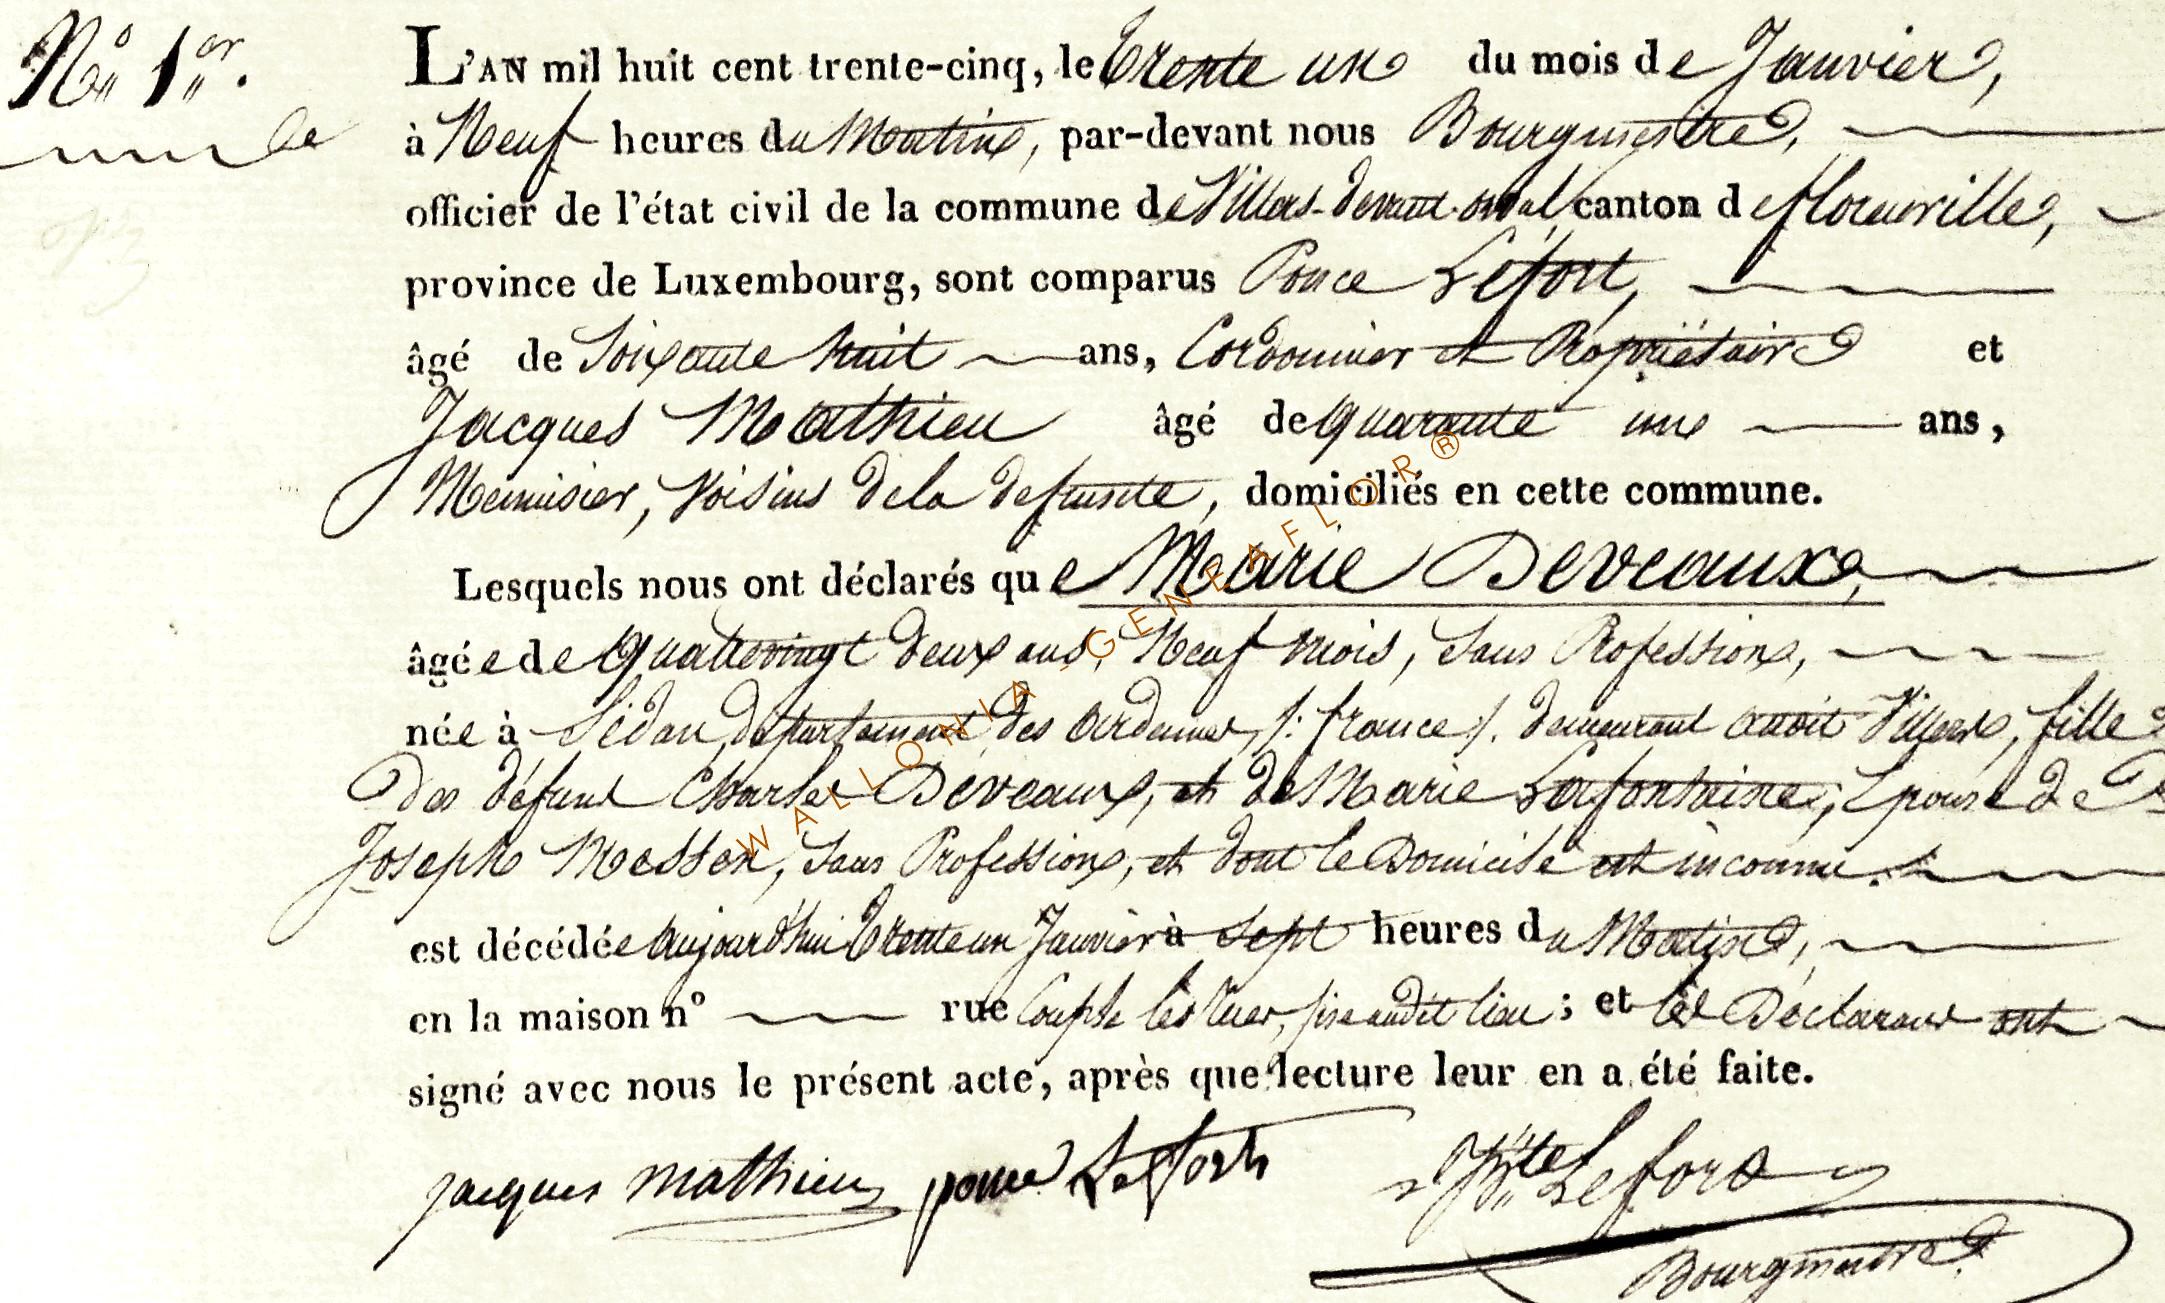 N.° 1.er
L'AN mil huit cent trente-cinq, le trente un du mois de Janvier,
à Neuf heures du Matin, par-devant nous Bourgmestre,
officier de l'état civil de la commune de Villers-devant-orval canton de florenville,
province de Luxembourg, sont comparus Ponce Lefort,
âgé de Soixante huit ans, Cordonnier et Propriétaire et
Jacques Mathieu âgé de quarante un ans,
Menuisier, Voisins de la defunte, domiciliés en cette commune.
Lesquels nous ont déclarés que Marie Deveaux,
âgée de Quatrevingt deux ans, Neuf mois, Sans Profession,
née à Sédan, département des Ardennes, /: france /. demeurant audit Villers, fille
des défunt Charles Deveaux, et de Marie Lafontaine, Epouse de
Joseph Messen, Sans Profession, et dont le Domicile est inconnu.
est décédée aujourd'hui trente un Janvier à Sept heures du Matin,
en la maison n° rue les sise audit lieu ; et les Déclarans ont
signé avec nous le présent acte, après que lecture leur en a été faite.
jacques mathieu ponce Lefort Lefort
Bourgmestre
WALLONIA - GENEAFLOR®